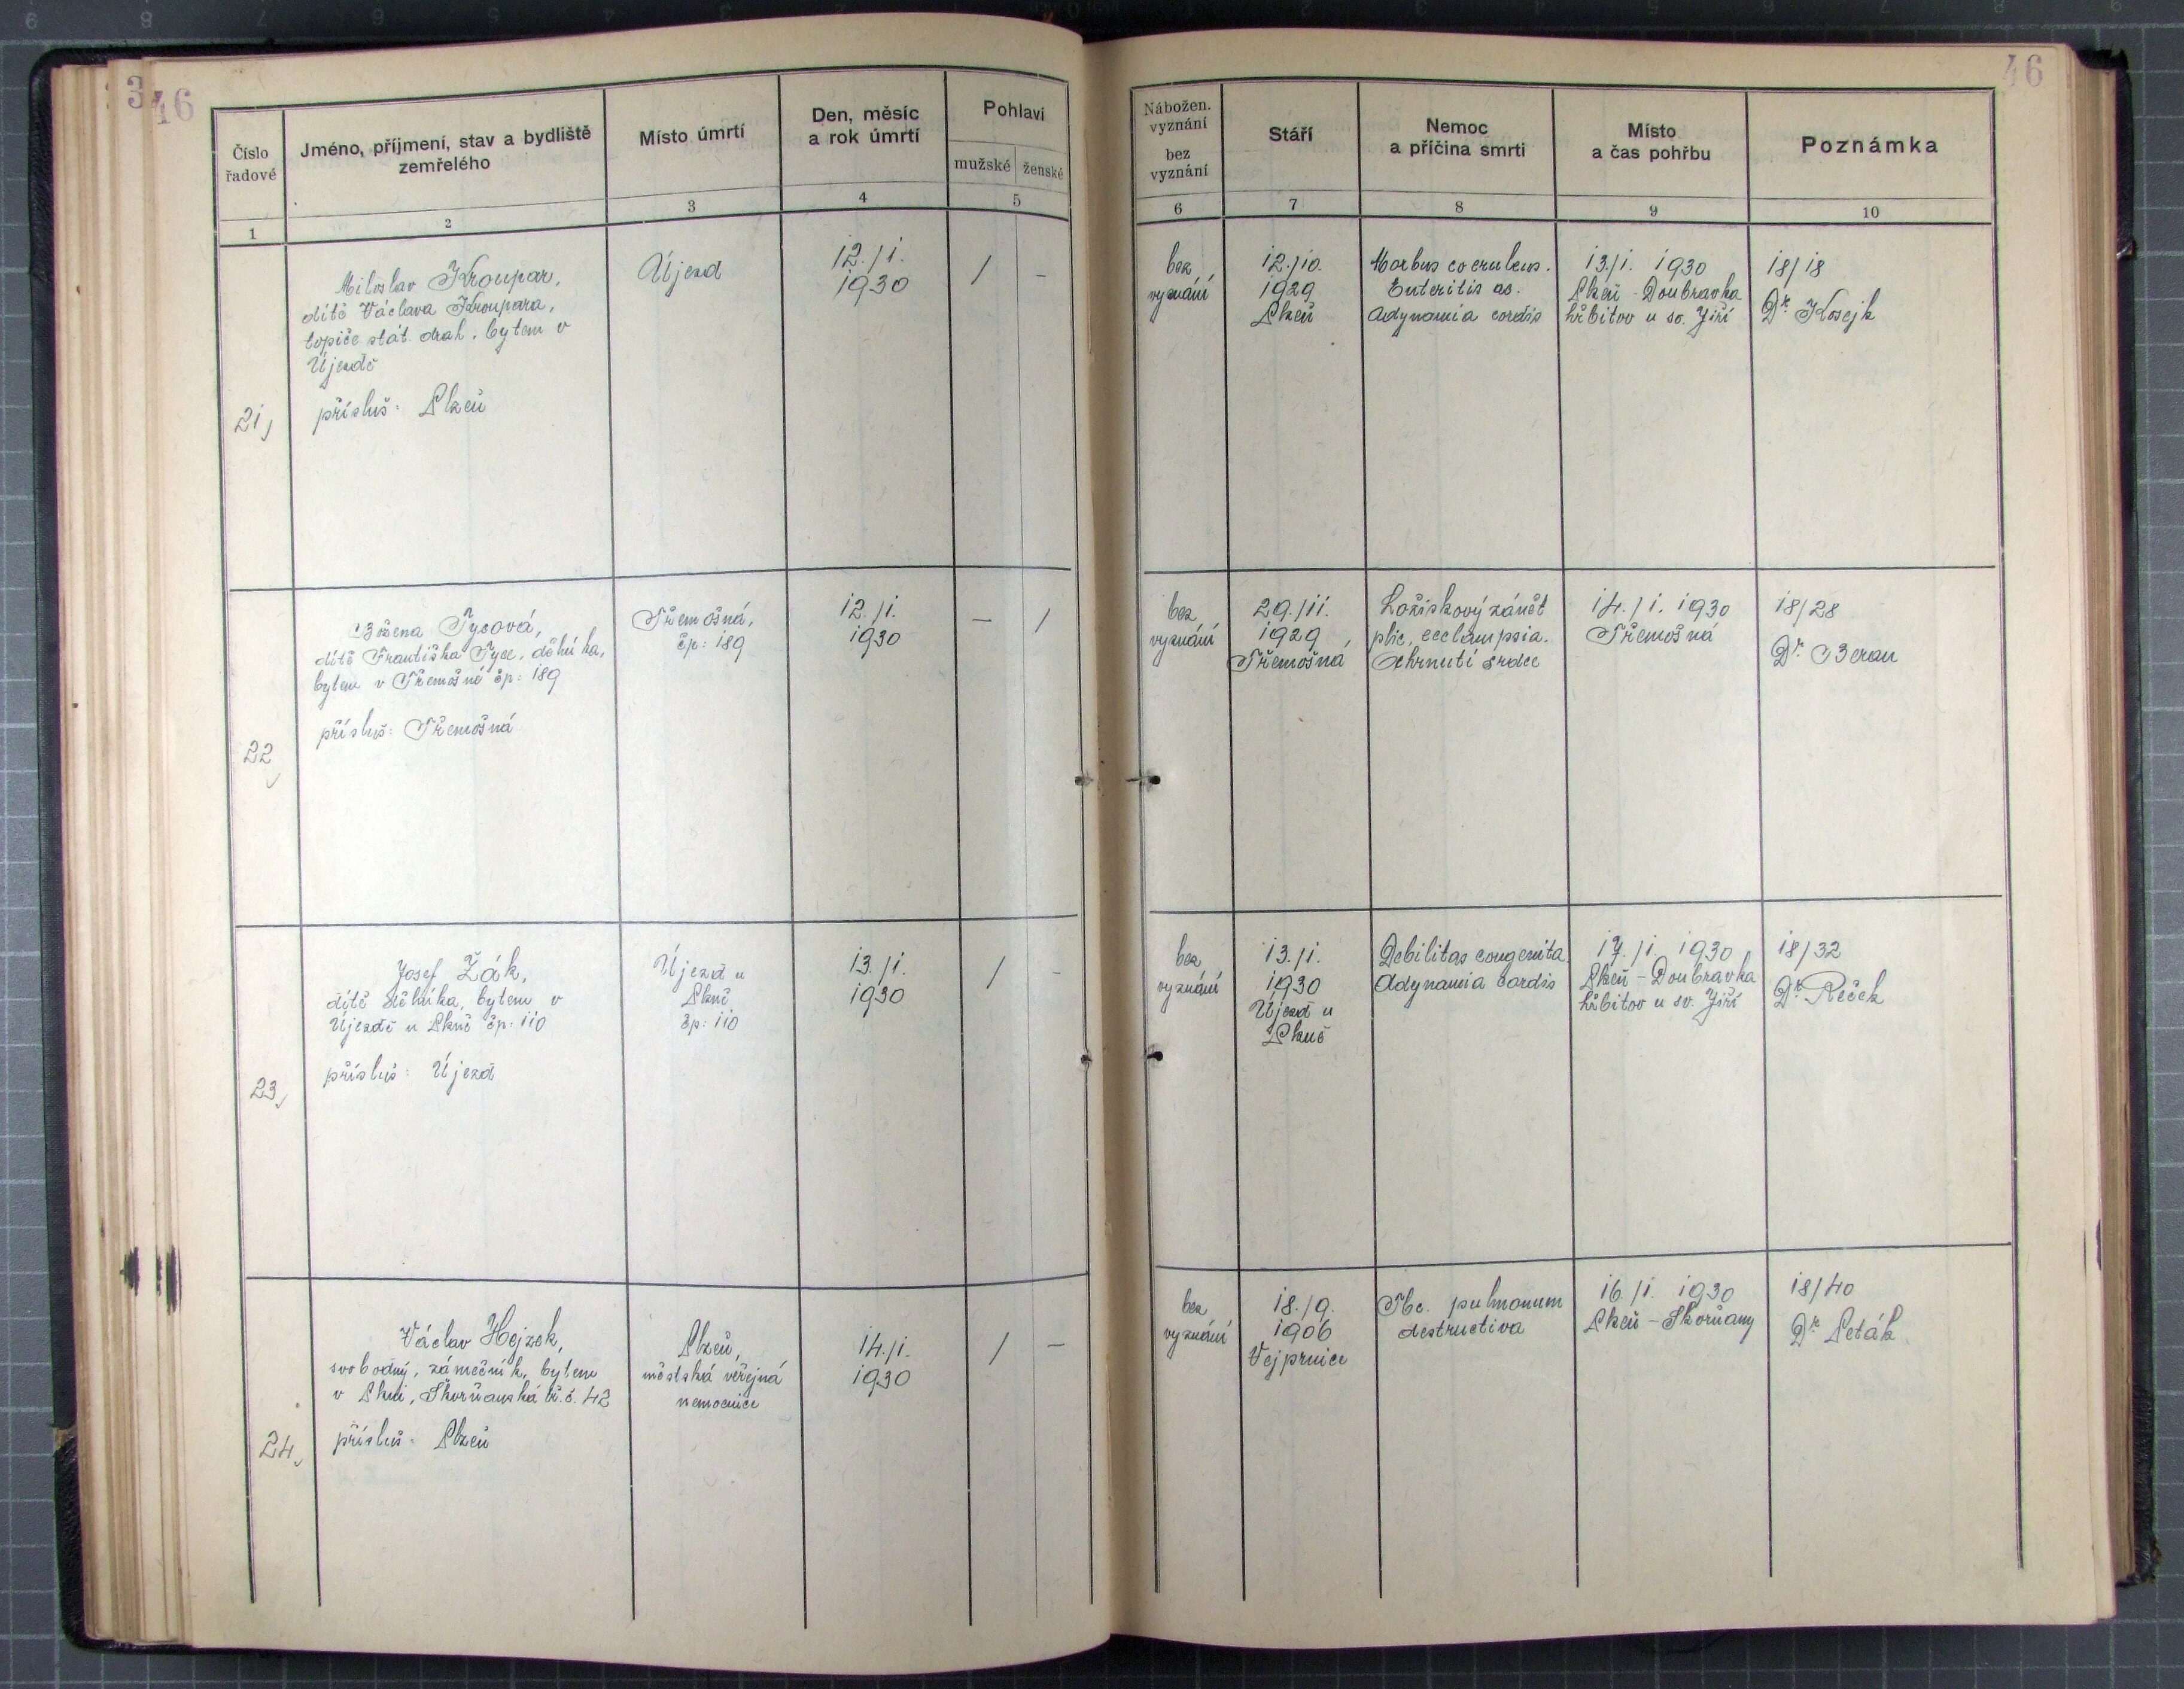 3
46
46
Číslo
řadové
Jméno, příjmení, stav a bydliště
zemřelého
Místo úmrtí
Den, měsíc
a rok úmrtí
Pohlaví
mužské
ženské
Nábožen.
vyznání
bez
vyznání
Stáří
Nemoc
a příčina smrti
Místo
a čas pohřbu
Poznámka
1
2
3
4
5
6
7
8
9
10
21,
Miloslav Kroupar,
dítě Václava Kroupara,
topiče stát. drah, bytem v
Újezdě
přísluš: Plzeň
Újezd
12./1.
1930
/
-
bez
vyznání
12./10.
1929
Plzeň
Morbus coeruleus.
Enteritis ac.
Adynamia cordis
13./1. 1930
Plzeň - Doubravka
hřbitov u sv. Jiří
18/18
Dr. Kosejk
22,
Božena Tycová,
dítě Františka Tyce, dělníka,
bytem v Třemošné čp: 189
přísluš: Třemošná
Třemošná,
čp: 189
12./1.
1930
-
/
bez
vyznání
29./11.
1929,
Třemošná
Ložiskový zánět
plic, ecclampsia.
Ochrnutí srdce
14./1. 1930
Třemošná
18/28
Dr. Beran
23,
Josef Žák,
dítě dělníka, bytem v
Újezdě u Plzně čp: 110
přísluš: Újezd
Újezd u
Plzně
čp: 110
13./1.
1930
/
-
bez
vyznání
13./1.
1930
Újezd u
Plzně
Debilitas congenita
Adynamia cordis
17./1. 1930
Plzeň - Doubravka
hřbitov u sv. Jiří
18/32
Dr. Řeček
24,
Václav Hejzek,
svobodný, zámečník, bytem
v Plzni, Škorňanská tř. č. 42
přísluš: Plzeň
Plzeň,
městská veřejná
nemocnice
14./1.
1930
/
-
bez
vyznání
18./9.
1906
Vejprnice
Tbc. pulmonum
destructiva
16./1. 1930
Plzeň - Škorňany
18/40
Dr. Peták